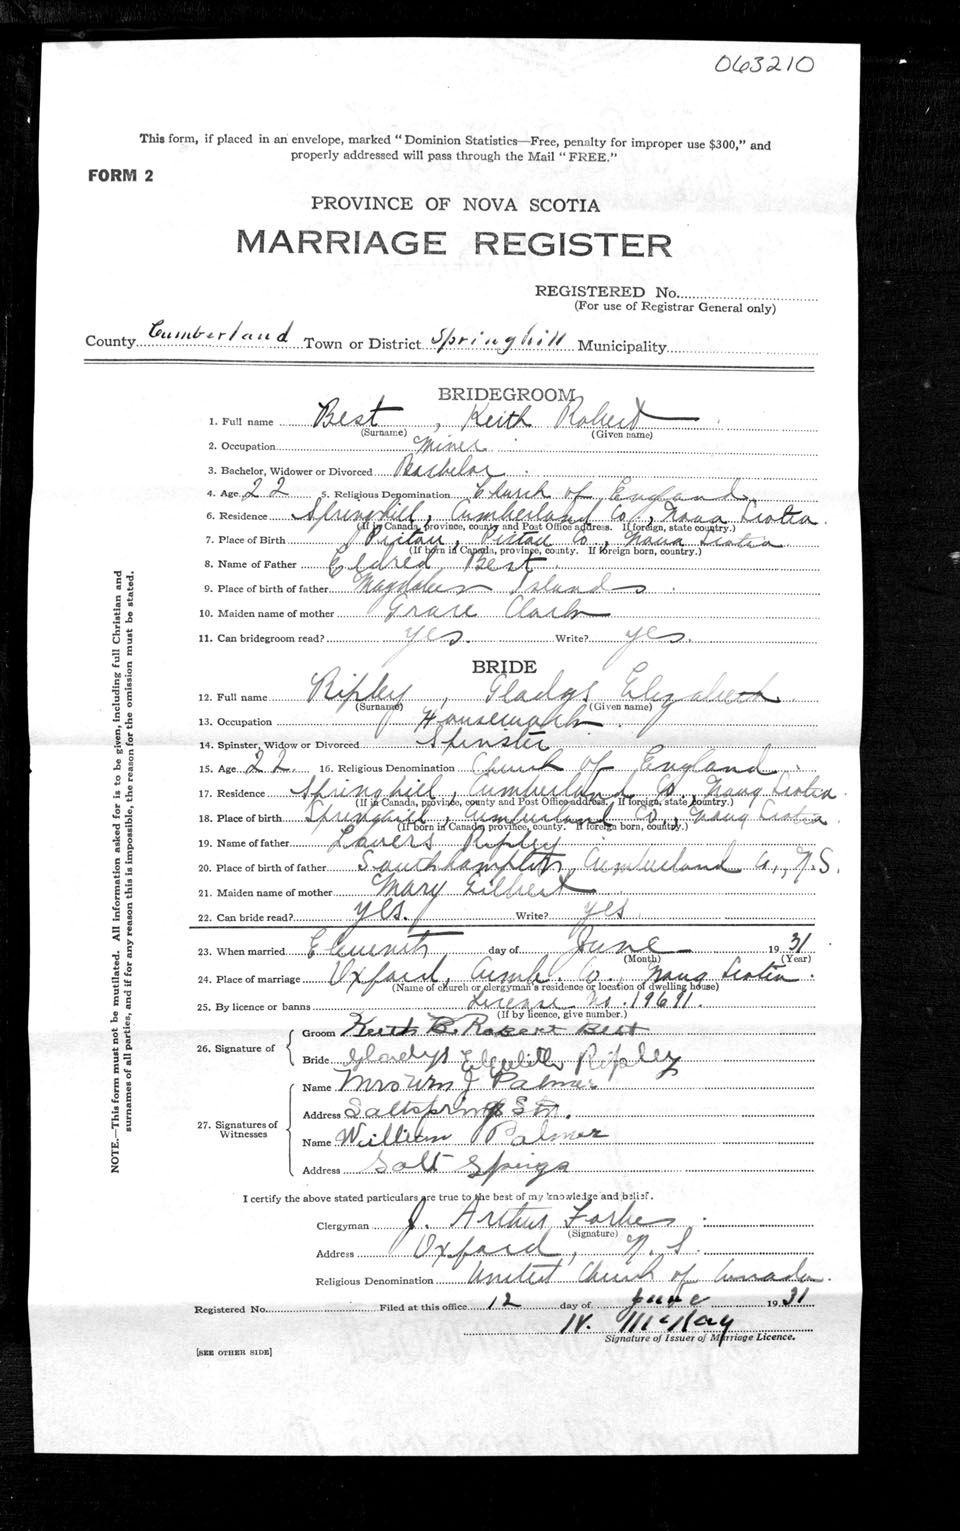 063210
This form, if placed in an envelope, marked "Dominion Statistics—Free, penalty for improper use $300," and
properly addressed will pass through the Mail "FREE."
FORM 2
PROVINCE OF NOVA SCOTIA
MARRIAGE REGISTER
REGISTERED No.
(For use of Registrar General only)
County Cumberland Town or District Springhill Municipality
BRIDEGROOM
1. Full name Best, Keith Robert
(Surname) (Given name)
2. Occupation Miner
3. Bachelor, Widower or Divorced Bachelor
4. Age 22 5. Religious Denomination Church of England
6. Residence Springhill, Cumberland Co., Nova Scotia
(If in Canada, province, county and Post Office address. If foreign, state country.)
7. Place of Birth Pictou, Pictou Co., Nova Scotia
(If born in Canada, province, county. If foreign born, country.)
8. Name of Father Eldred Best
9. Place of birth of father Magdalen Islands
10. Maiden name of mother Grace Clark
11. Can bridegroom read? yes. Write? yes.
BRIDE
12. Full name Ripley, Gladys Elizabeth
(Surname) (Given name)
13. Occupation Housework
14. Spinster, Widow or Divorced Spinster
15. Age 22 16. Religious Denomination Church of England
17. Residence Springhill, Cumberland Co., Nova Scotia
(If in Canada, province, county and Post Office address. If foreign, state country.)
18. Place of birth Springhill, Cumberland Co., Nova Scotia
(If born in Canada, province, county. If foreign born, country.)
19. Name of father Ripley
20. Place of birth of father Southhampton, Cumberland Co., N.S.
21. Maiden name of mother Mary Gilbert
22. Can bride read? yes. Write? yes
23. When married Eleventh day of June 1931
(Month) (Year)
24. Place of marriage Oxford, Cumb. Co. Nova Scotia.
(Name of church or clergyman's residence or location of dwelling house)
25. By licence or banns License No. 19691.
(If by licence, give number.)
26. Signature of Groom Keith B. Robert Best
Bride Gladys Elizabeth Ripley
27. Signatures of Witnesses Name Mrs Wm J Palmer
Address Saltsprings Stn.
Name William Palmer
Address Salt Springs
I certify the above stated particulars are true to the best of my knowledge and belief.
Clergyman J. Arthur Forbes
(Signature)
Address Oxford, N.S.
Religious Denomination United Church of Canada.
Registered No. Filed at this office 12 day of June 1931
McKay
Signature of Issuer of Marriage Licence.
[SEE OTHER SIDE]
NOTE.—This form must not be mutilated. All Information asked for is to be given, including full Christian and
surnames of all parties, and if for any reason this is impossible, the reason for the omission must be stated.